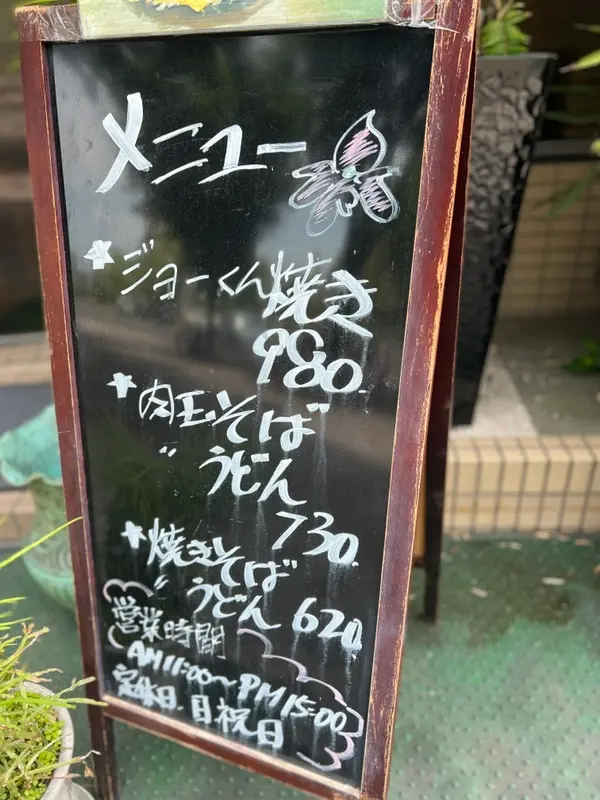 メニュー
★ジョーくん焼き
980.
★肉玉そば
〃うどん
730.
★焼きそば
〃うどん 620.
営業時間
AM11:00〜PM15:00
定休日.日祝日